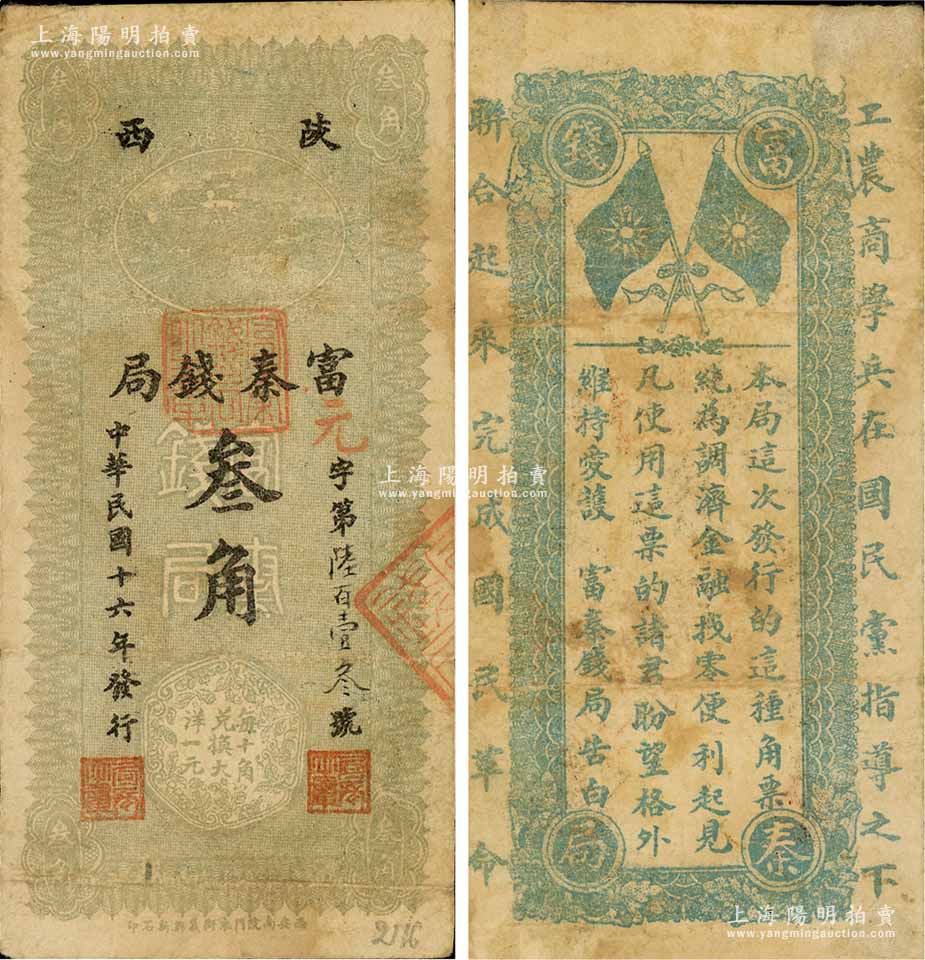 上海陽明拍賣
www.yangmingauction.com
叁角
陝西
富秦錢局
叁角
元字第陸百壹叁號
中華民國十六年發行
每十角
兌換大
洋一元
2116
上海陽明拍賣
www.yangmingauction.com
工農商學兵在國民黨指導之下
聯合起來完成國民革命
富秦錢局
本局這次發行的這種角票
純為調濟金融找零便利起見
凡使用這票的諸君盼望格外
維持愛護 富秦錢局告白
上海陽明拍賣
www.yangmingauction.com
上海陽明拍賣
www.yangmingauction.com